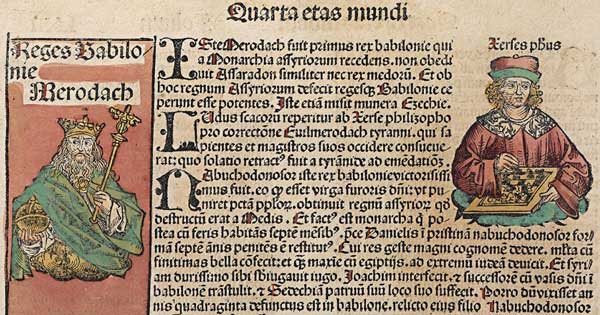 Quarta etas mundi
Reges Babilo
nie
Merodach
ISte Merodach fuit primus rex babilonie qui
a Monarchia assyriorum recedens. non obedi
uit Assaradon similiter nec rex medorū. Et ob
hoc regnum Assyriorum defecit regesqȝ Babilonie ce
perunt esse potentes. Iste etiā misit munera Ezechie.
LUdus scacorū reperitur ab Xerse philozopho
pro correctōne Euilmerodach tyranni. qui sa
pientes et magistros suos occidere consueue
rat: quo solatio retractꝰ fuit a tyrānide ad emēdatōȝ.
NAbuchodonosor iste rex babilonie victorisi
mus fuit. eo ꝙ esset virga furoris dn̄i: vt pu
niret pctā pplorȝ. obtinuit regnū assyriorȝ qd̓
destructū erat a Medis. Et factꝰ est monarcha qui po
stea cū feris habitās septē mēsibꝰ. p̄ce Danielis ī pristinā nabuchodonosor for
mā septē ānis penitēs ē restitutꝰ. Cui res geste magni cognomē dedere. mlta cū
finitimas bella cōfecit: et qȝ maxīe cū egiptijs. ad extremū iudeā deuicit. Et syri
am durissimo sibi sb̓iugauit iugo. Joachim interfecit. ⁊ successorē cū vasis dn̄i ī
babilonē trāstulit. ⁊ Sedechiā patruū suū loco suo suffecit. Porro dū vixisset an
nis quadraginta defunctus est in babilone. relicto eius filio Nabuchodonosor
Xerses ph̄us